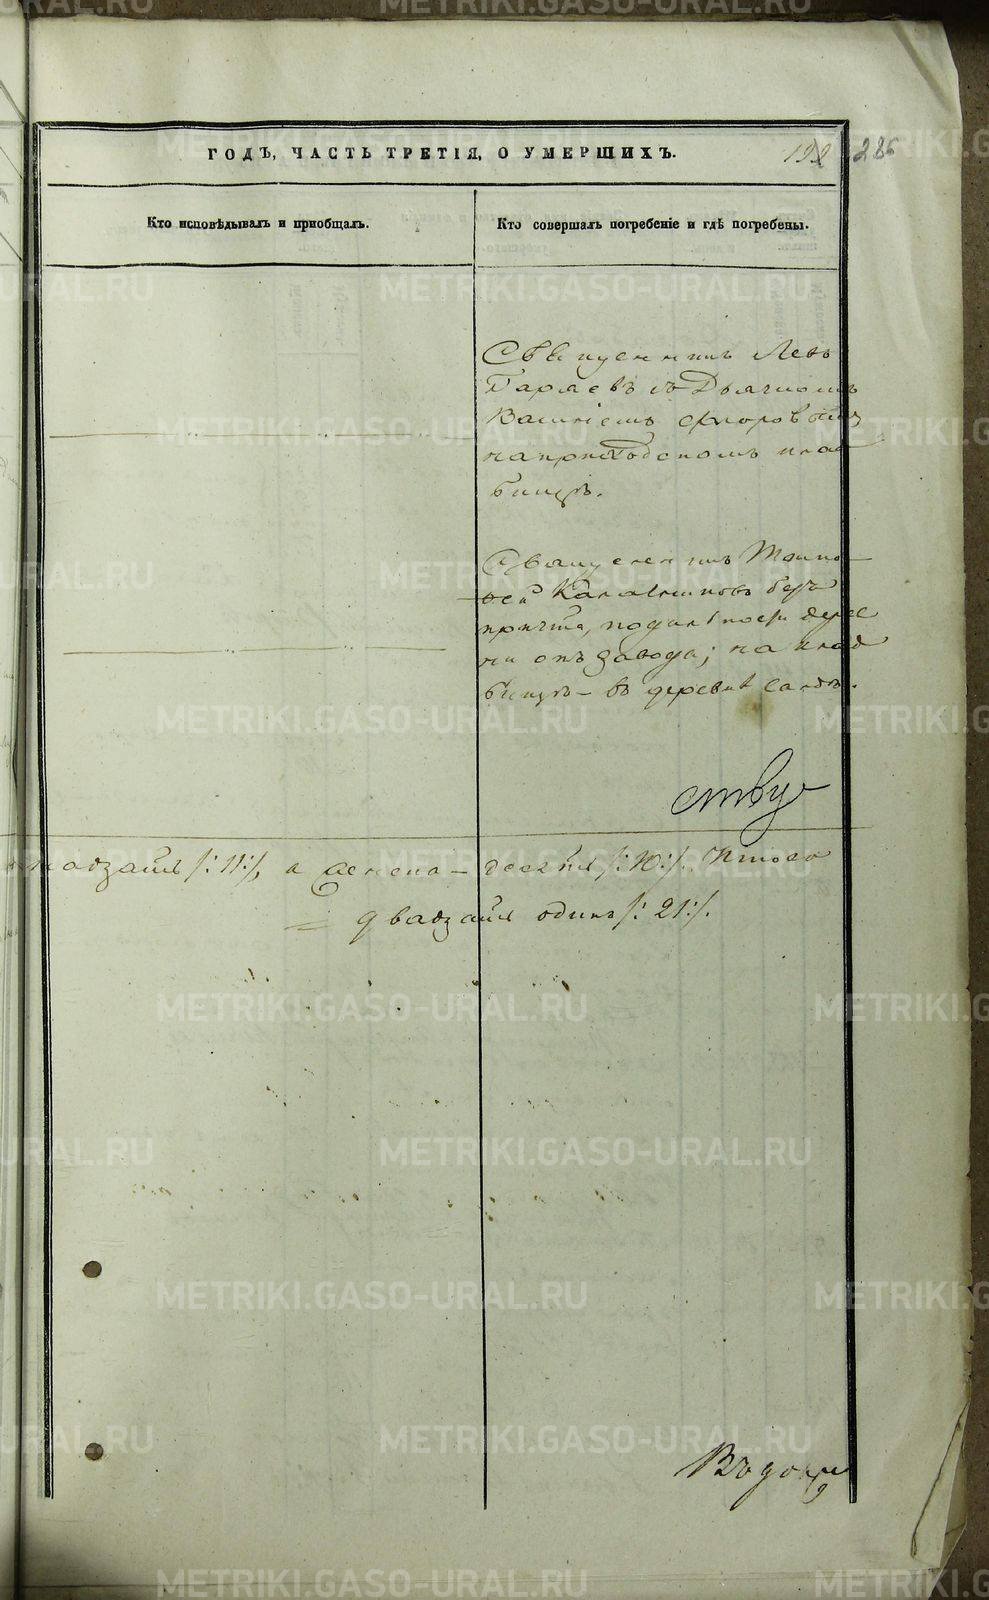 ГОДЪ, ЧАСТЬ ТРЕТІЯ, О УМЕРШИХЪ.
286
Кто исповѣдывалъ и приобщалъ.
Кто совершалъ погребеніе и гдѣ погребены.
Священникъ Левъ
Гаряевъ съ Дьячкомъ
Василіемъ Флоровымъ
на приходскомъ клад
бищѣ.
Священникъ Тимо
фей Калашниковъ безъ
причта, по дальности дерев
ни отъ завода; на клад
бищѣ въ деревнѣ
надзать /:11:/, а женска – десять /:10:/. Итого
= двадзать одинъ /:21:/.
METRIKI.GASO-URAL.RU